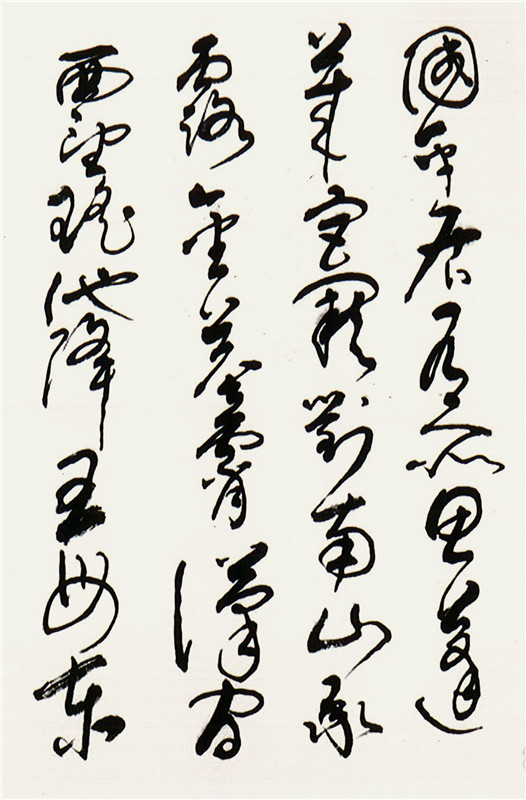 國平居有所思蓬
萊宮闕對南山承
露金莖霄漢間
西望瑤池降王母東